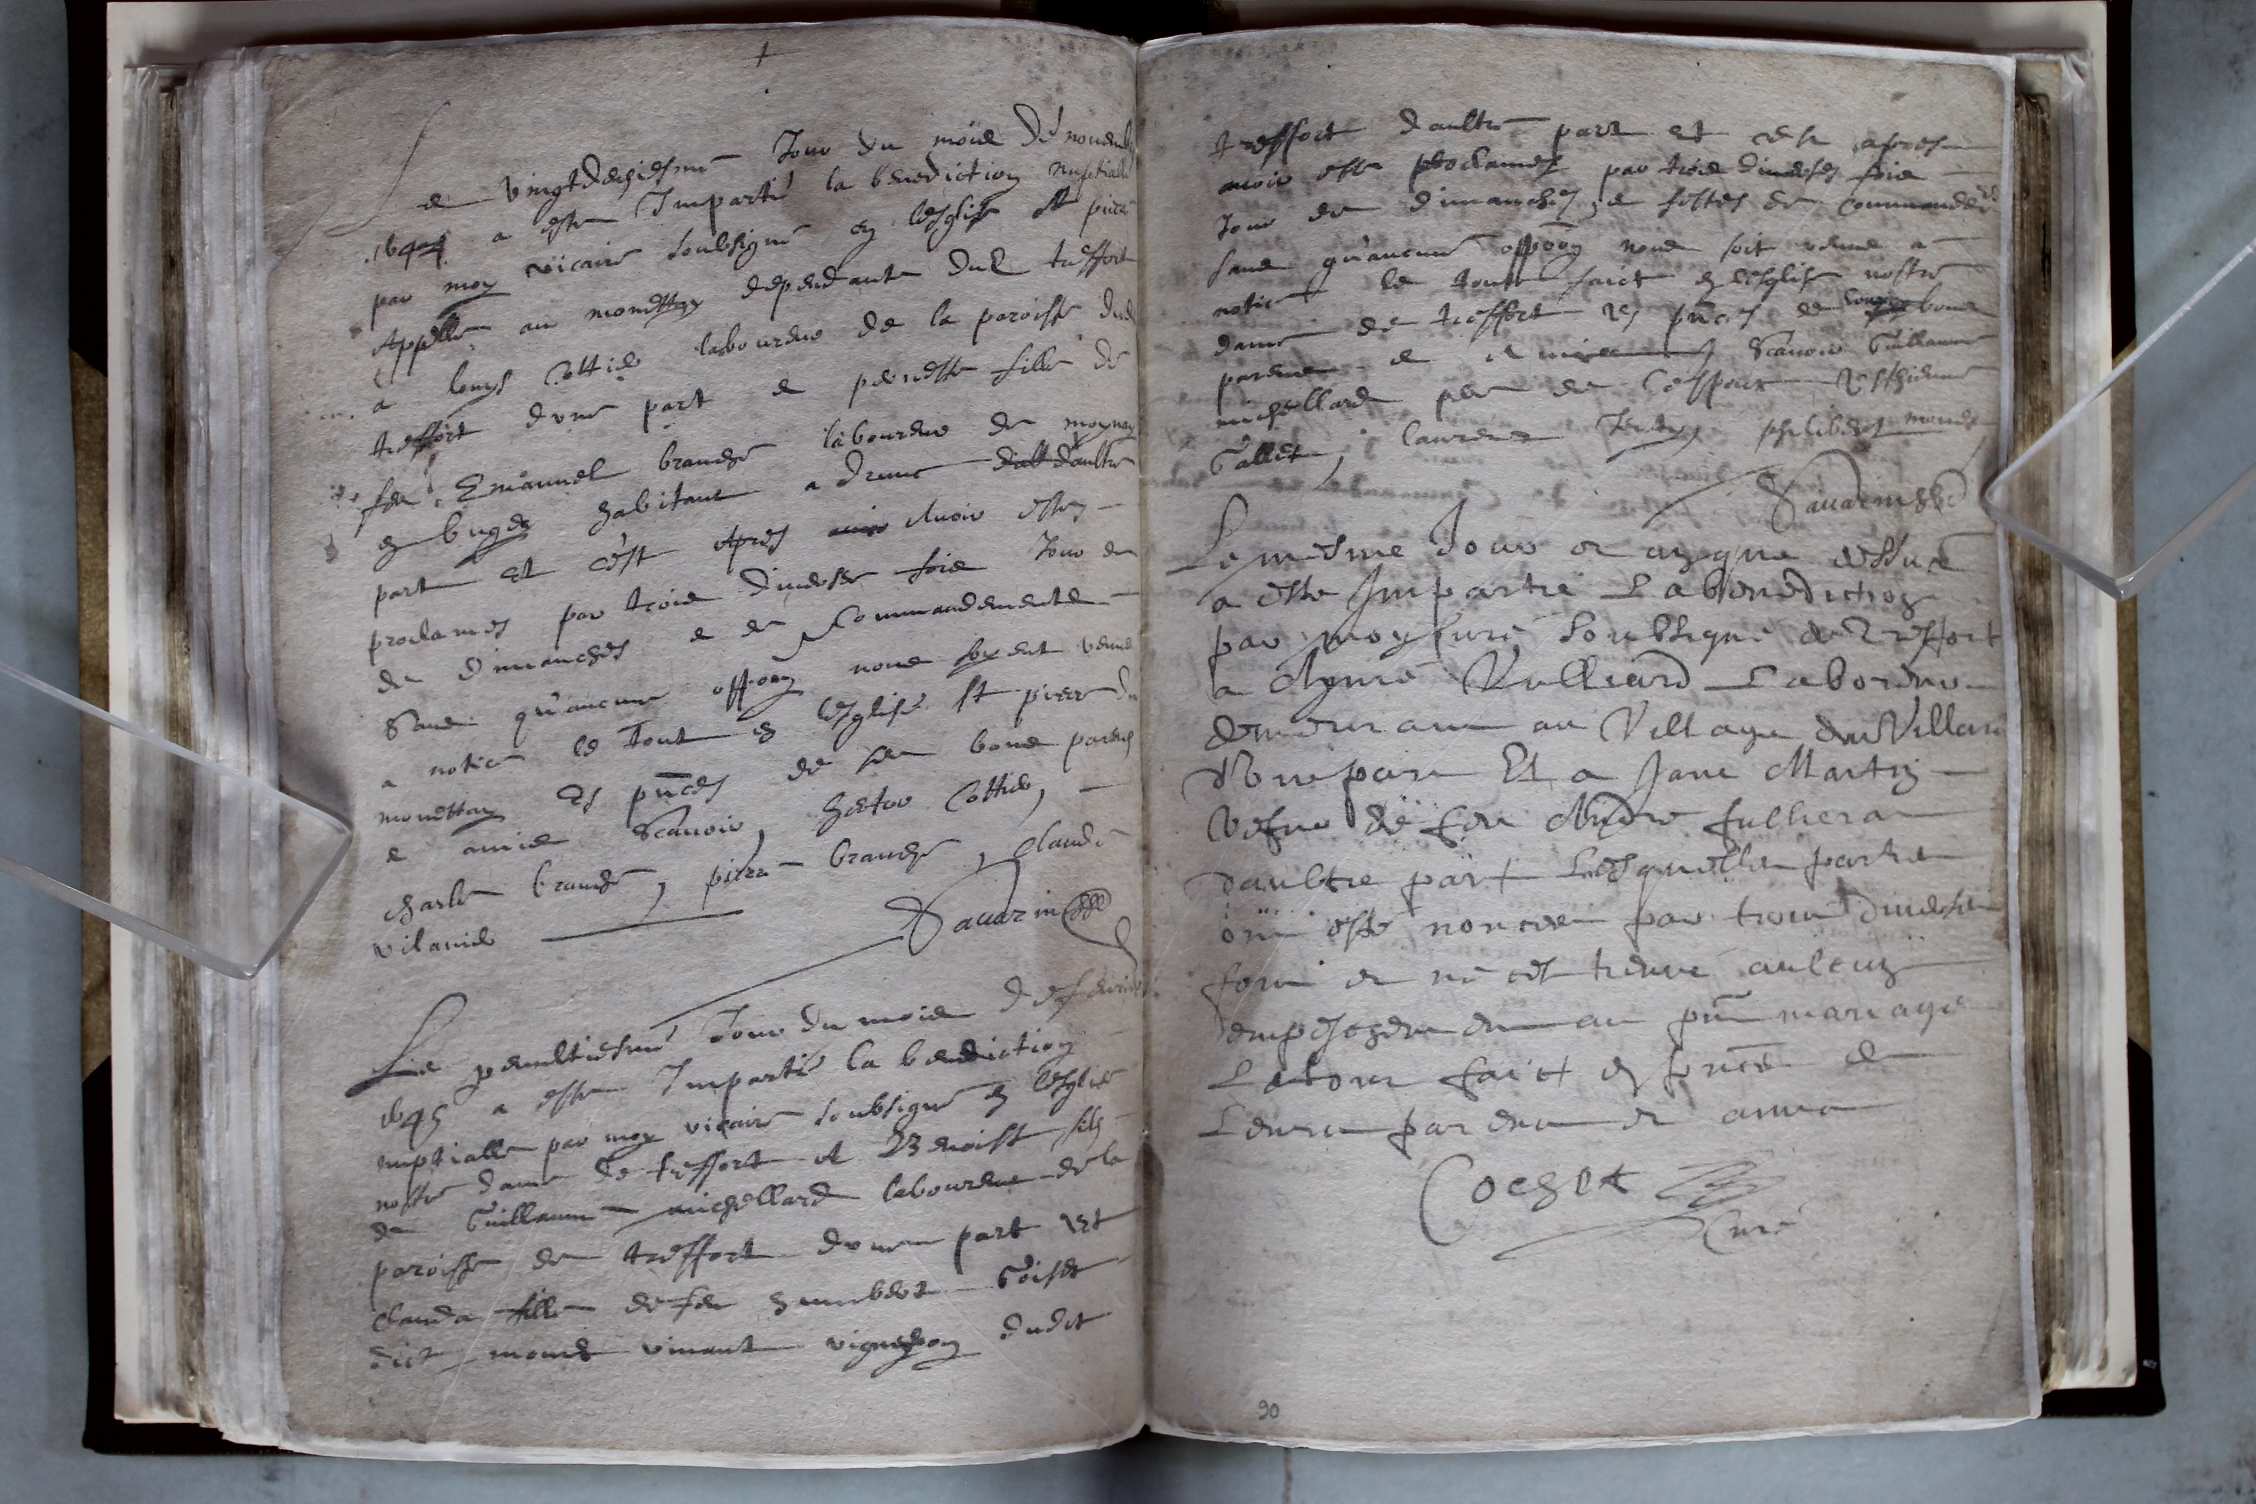 Le vingtdeuziesme Jour du mois de novemb
1644 a esté Imparti la benediction nuptiale
par moy vicaire soubsigné en lesglise st pierre
Appellé au monettay dependante dud treffort
a louys Cottier laboureur de la paroisse dud
treffort dune part et pernette fille de
feu Emanuel branche laboureur de
en bugey habitant a drun daultre
part Et cest Apres Avoir estes
proclamés par trois diverses fois Jour de
de dimanches et de Commandements
Sans qu'aucune oppon nous soyent venue
a notice le Tout en lesglise st pierre du
monettay Es pnces de leur bons parens
et amis Scavoir, hector Cottier,
charle branche, pierre branche, claude
vilanid
Savarin
Le penultiesme Jour du mois de febvrier
1645 a esté Imparti la benediction
nuptialle par moy vicaire soubsigné en lesglise
nostre dame de treffort a Benoist filz
de Guillaume michellard laboureur de la
paroisse de treffort dune part Et
clauda fille de feu humbert Goiset
dict vivant vigneron dudit
treffort daultre part et cest apres
avoir esté proclamés par trois diverses fois
Jour de dimanches, et festes de Commander
sans qu'aucune oppon nous soit venue a
notice le tout faict en lesglise nostre
dame de treffort Es pnces de leurs bons
parens et amis Scavoir Guillaume
michellard pere de lespoux
Gallet, laurent philibert
Savarin
Le mesme Jour et an que dessus
a esté Imparti La benediction
par moy Curé soubsigné de Treffort
a Aymé Vulliard Laboureur
demeurant au Village du Villard
d'une part Et a Jane Martin
vefve de feu Andre
daultre part Lesquelles parties
ont esté noncees par trois diverses
fois et ne cest treuvé aulcun
empeschement au pnt mariage
Le tout faict en pnce de
Leurs parens et amis
Cochet
Curé
90